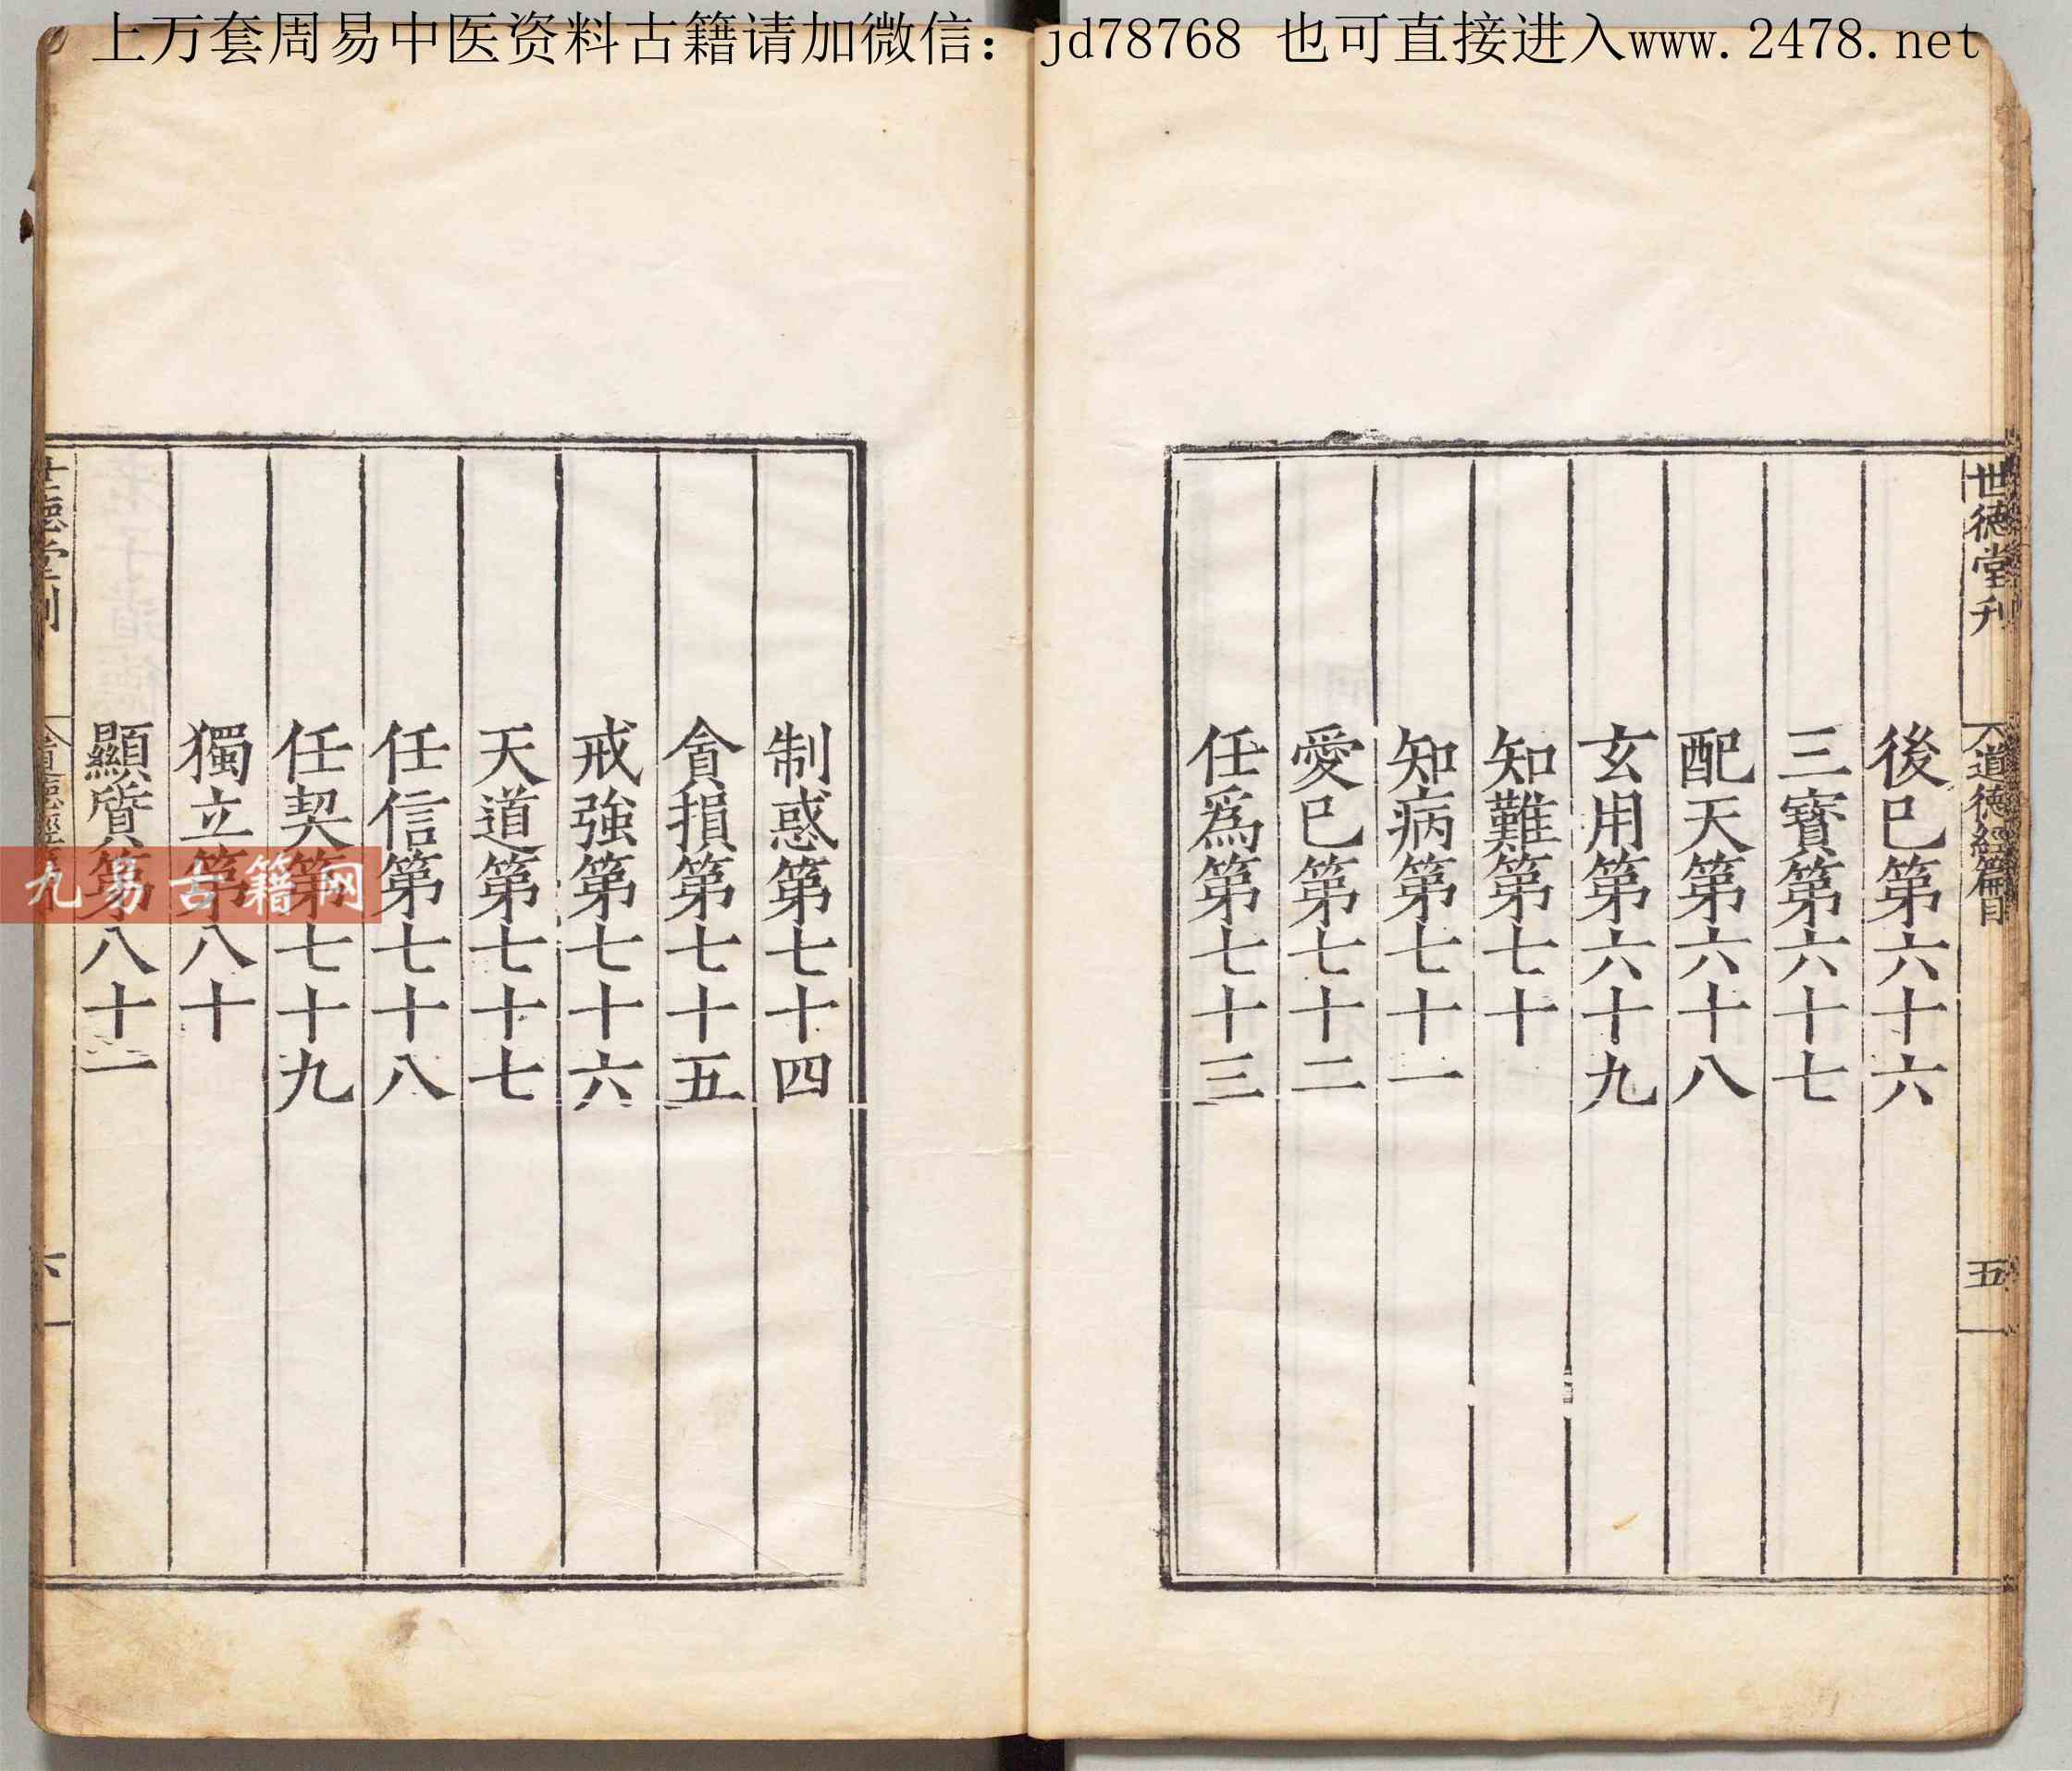 上万套周易中医资料古籍请加微信：jd78768 也可直接进入www.2478.net
世德堂刊 道德經篇目 五
後已第六十六
三寶第六十七
配天第六十八
玄用第六十九
知難第七十
知病第七十一
愛已第七十二
任爲第七十三
制惑第七十四
貪損第七十五
戒強第七十六
天道第七十七
任信第七十八
任契第七十九
獨立第八十
顯質第八十一
世德堂刊 道德經 六
九易古籍网